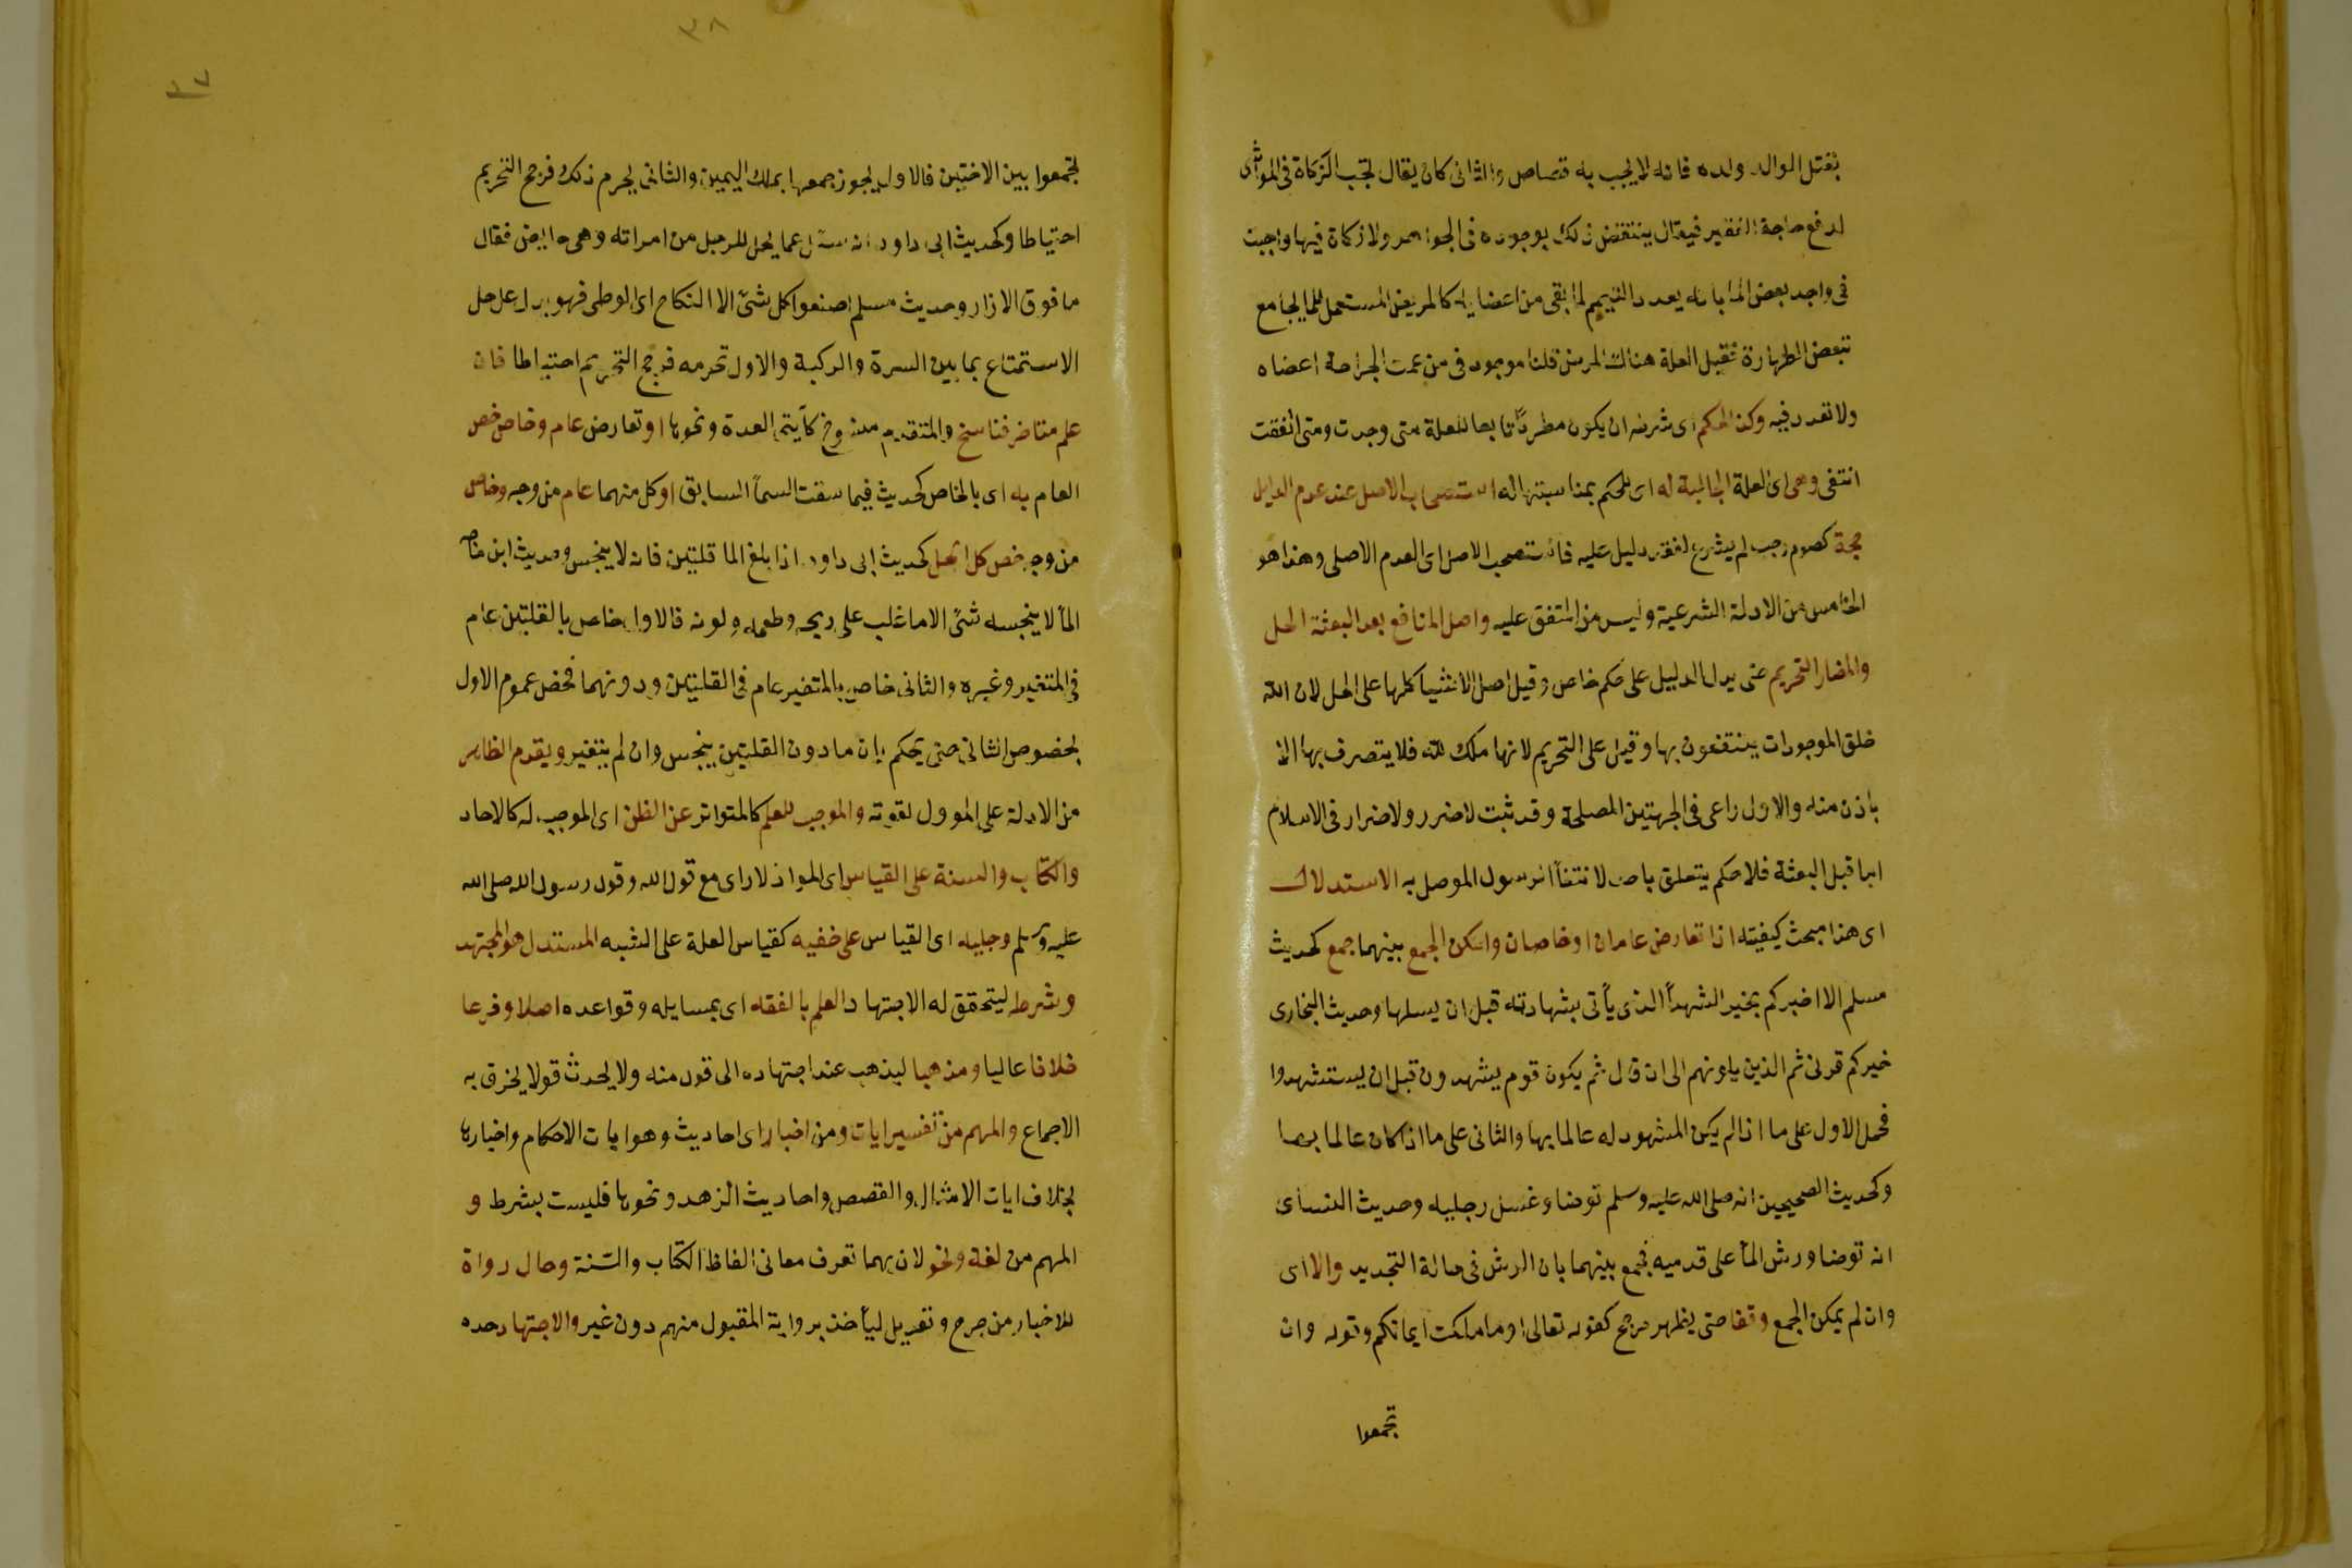 بقتل الوالد ولده فانه لا يجب به قصاص والثانى كان يقال تجب الزكاة فى المواشى
لدفع حاجة الفقير فيقال ينتقض ذلك بوجوده فى الجواهر ولا زكاة فيها واجيب
فى واجد بعض الما بانه يعدد التيمم لما بقى من اعضايه كالمريض المستعمل للما بجامع
تبعض الطهارة فقيل العلة هناك المرض قلنا موجود فى من عمت الجراحة اعضاه
ولا تعدد فيه وكذا الحكم اى شرطه ان يكون مطردًا تابعا للعلة متى وجدت ومتى انتفت
انتفى وهى اى العلة الجالبة له اى للحكم بمناسبتها له استصحاب الاصل عند عدم الدليل
حجة كصوم رجب لم يشرع لفقد دليل عليه فاستصحب الاصل اى العدم الاصلى وهذا هو
الخامس من الادلة الشرعية وليس من المتفق عليه واصل المنافع بعد البعثة الحل
والمضار التحريم حتى يدل الدليل على حكم خاص وقيل اصل الاشيا كلها على الحل لان الله
خلق الموجودات ينتفعون بها وقيل على التحريم لانها ملك لله فلا يتصرف بها الا
باذن منه والاول راعى فى الجهتين المصلحة وقد ثبت لا ضرر ولا ضرار فى الاسلام
اما قبل البعثة فلا حكم يتعلق باحد لانتفاأ الرسول الموصل به الاستدلال
اى هذا مبحث كيفيته اذا تعارض عامان او خاصان وامكن الجمع بينهما جمع كحديث
مسلم الا اخبركم بخير الشهدأ الذى يأتى بشهادته قبل ان يسلها وحديث البخارى
خيركم قرنى ثم الذين يلونهم الى ان قال ثم يكون قوم يشهدون قبل ان يستشهدوا
فحمل الاول على ما اذا لم يكن المشهود له عالما بها والثانى على ما اذا كان عالما بها
وكحديث الصحيحين انه صلى الله عليه وسلم توضا وغسل رجليه وحديث النسأى
انه توضا ورش المأ على قدميه فجمع بينهما بان الرش فى حالة التجديد والا اى
وان لم يمكن الجمع وقفا حتى يظهر مرجح كقوله تعالى او ما ملكت ايمانكم وقوله وان
تجمعوا
٣٨
٣٧
تجمعوا بين الاختين فالاول يجوز جمعهما بملك اليمين والثانى يحرم ذلك فرجح التحريم
احتياطا وكحديث ابى داود انه سئل عما يحل للرجل من امراته وهى حايض فقال
ما فوق الازار وحديث مسلم اصنعوا كل شئ الا النكاح اى الوطى فهو يدل على حل
الاستمتاع بما بين السرة والركبة والاول تحرمه فرجح التحريم احتياطا فان
علم متاخر فناسخ والمتقدم منسوخ كآيتى العدة ونحوها او تعارض عام وخاص خص
العام به اى بالخاص كحديث فيما سقت السمأ السابق او كل منهما عام من وجه وخاص
من وجه خص كل بكل كحديث ابى داود اذا بلغ الما قلتين فانه لا ينجس وحديث ابن ماجه
المأ لا ينجسه شئ الا ما غلب على ريحه وطعمه ولونه فالاول خاص بالقلتين عام
فى المتغير وغيره والثانى خاص بالمتغير عام فى القلتين ودونهما فخص عموم الاول
بخصوص الثانى حتى يحكم بان ما دون القلتين ينجس وان لم يتغير ويقدم الظاهر
من الادلة على المؤول لقوته والموجب للعلم كالمتواتر عن الظن اى الموجب له كالاحاد
والكتاب والسنة على القياس اى الموا اذ لا راى مع قول الله وقول رسول الله صلى الله
عليه وسلم وجليه اى القياس على خفيه كقياس العلة على الشبه المستدل هو المجتهد
وشرطه ليتحقق له الاجتهاد العلم بالفقه اى بمسايله وقواعده اصلا وفرعا
خلافا عاليا ومذهبا ليذهب عند اجتهاده الى قول منه ولا يحدث قولا يخرق به
الاجماع والمهم من تفسير ايات ومن اخبار اى احاديث وهو ايات الاحكام واخبارها
بخلاف ايات الامثال والقصص واحاديث الزهد ونحوها فليست بشرط و
المهم من لغة ونحو لان بهما تعرف معانى الفاظ الكتاب والسنة وحال رواة
للاخبار من جرح وتعديل ليأخذ برواية المقبول منهم دون غير والاجتهاد حده